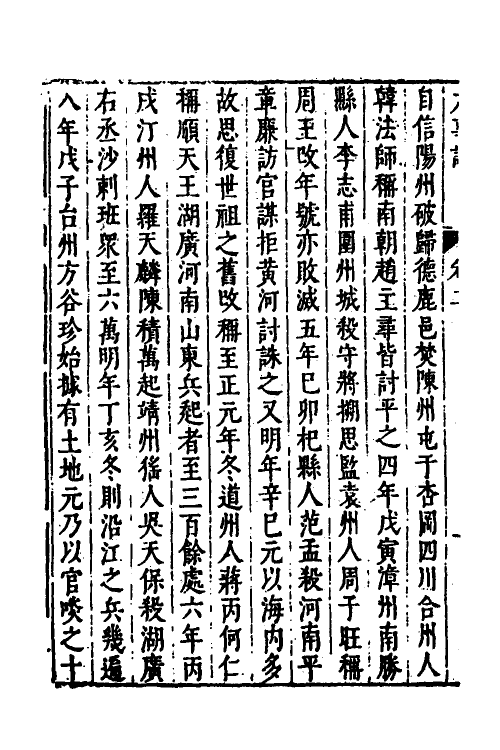 自信陽州破歸德鹿邑焚陳州屯于杏岡四川合州人
韓法師稱南朝趙王尋皆討平之四年戊寅漳州南勝
縣人李志甫圍州城殺守將搠思監袁州人周子旺稱
周王改年號亦敗滅五年巳卯杞縣人范孟殺河南平
章廉訪官謀拒黄河討誅之又明年辛巳元以海内多
故思復世祖之舊改稱至正元年冬道州人蔣丙何仁
稱順天王湖廣河南山東兵起者至三百餘處六年丙
戌汀州人羅天麟陳積萬起靖州徭人吳天保殺湖廣
右丞沙剌班眾至六萬明年丁亥冬則沿江之兵幾遍
八年戊子台州方谷珍始據有土地元乃以官啖之十